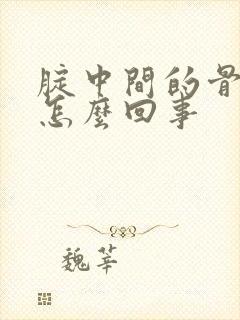 腚中間的骨
怎麼回事
魏莘